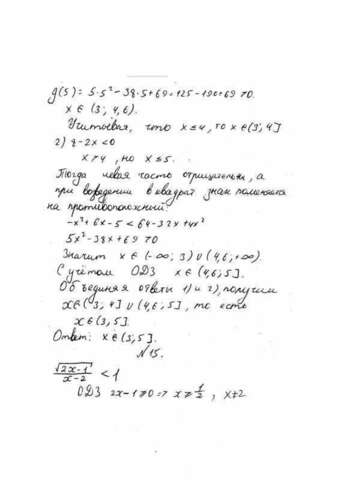 g(5) = 5·5² - 38·5 + 69 = 125 - 190 + 69 > 0.
x ∈ (3; 4,6).
Учитывая, что x ≤ 4, то x ∈ (3; 4]
2) 8 - 2x < 0
x > 4, но x ≤ 5.
Тогда левая часть отрицательна, а
при возведении в квадрат знак поменяется
на противоположный:
-x² + 6x - 5 < 64 - 32x + 4x²
5x² - 38x + 69 > 0
Значит x ∈ (-∞; 3) ∪ (4,6; +∞)
С учётом ОДЗ x ∈ (4,6; 5].
Объединяя ответы 1) и 2), получим
x ∈ (3; 4] ∪ (4,6; 5], то есть
x ∈ (3; 5].
Ответ: x ∈ (3; 5].
№ 15.
√(2x - 1) / (x - 2) < 1
ОДЗ 2x - 1 ≥ 0 => x ≥ 1/2, x ≠ 2